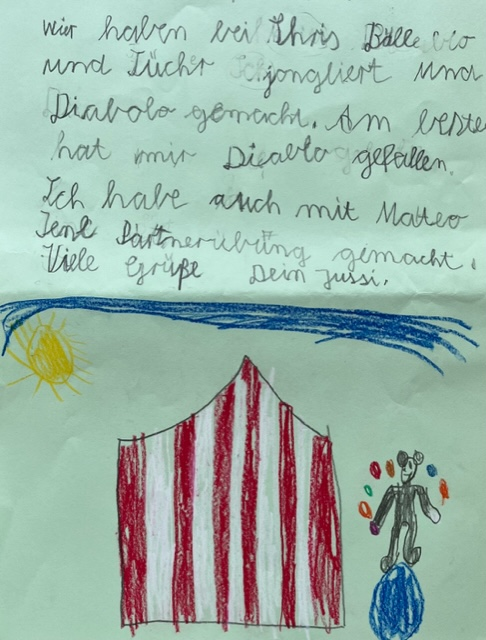 wier haben bei Chris Bälle
und Tücher jongliert und
Diabolo gemacht. Am beste
hat mir Diabolo gefallen.
Ich habe auch mit Mateo
Partnerübung gemacht.
Viele Grüße Dein Jussi.